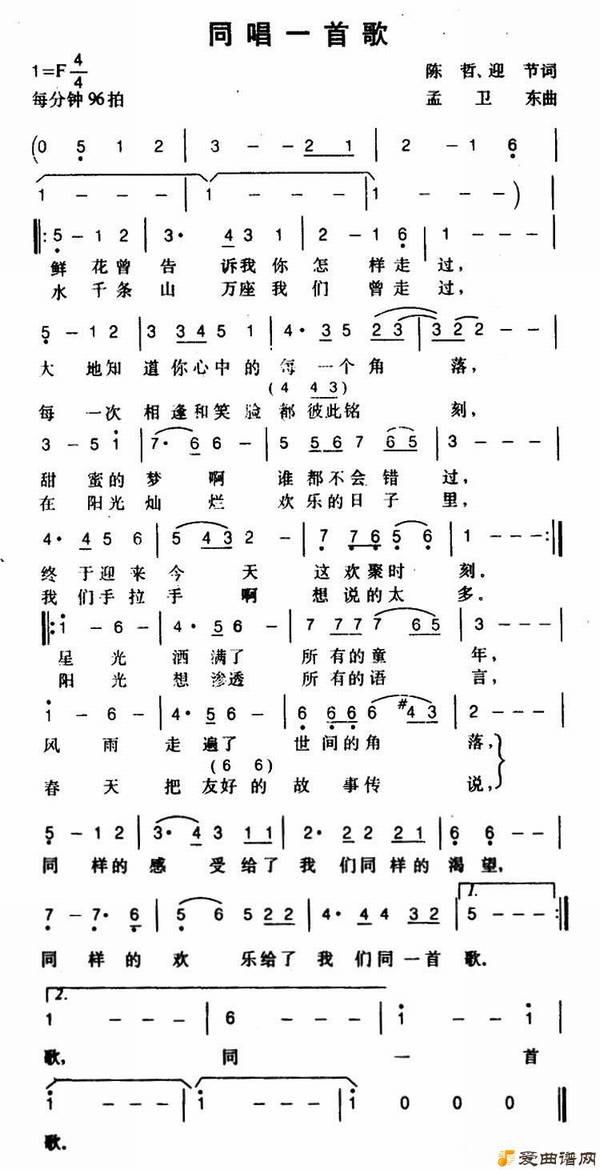 同唱一首歌
1=F 4/4
陈 哲、迎 节词
每分钟 96拍
孟 卫 东曲
(0 5 1 2 | 3 - - 2 1 | 2 - 1 6 |
1 - - - | 1 - - - | 1 - - - )
‖: 5 - 1 2 | 3· 4 3 1 | 2 - 1 6 | 1 - - - |
鲜 花 曾 告 诉 我 你 怎 样 走 过,
水 千 条 山 万 座 我 们 曾 走 过,
5 - 1 2 | 3 3 4 5 1 | 4· 3 5 2 3 | 3 2 2 - - |
大 地 知 道 你 心 中 的 每 一 个 角 落,
(4 4 3)
每 一 次 相 逢 和 笑 脸 都 彼 此 铭 刻,
3 - 5 1 | 7· 6 6 - | 5 5 6 7 6 5 | 3 - - - |
甜 蜜 的 梦 啊 谁 都 不 会 错 过,
在 阳 光 灿 烂 欢 乐 的 日 子 里,
4· 4 5 6 | 5 4 3 2 - | 7 7 6 5 6 | 1 - - - :‖
终 于 迎 来 今 天 这 欢 聚 时 刻。
我 们 手 拉 手 啊 想 说 的 太 多。
‖: 1 - 6 - | 4· 5 6 - | 7 7 7 7 6 5 | 3 - - - |
星 光 洒 满 了 所 有 的 童 年,
阳 光 想 渗 透 所 有 的 语 言,
1 - 6 - | 4· 5 6 - | 6 6 6 6 #4 3 | 2 - - - |
风 雨 走 遍 了 世 间 的 角 落,
(6 6)
春 天 把 友 好 的 故 事 传 说,
5 - 1 2 | 3· 4 3 1 1 | 2· 2 2 2 2 1 | 6 6 - - |
同 样 的 感 受 给 了 我 们 同 样 的 渴 望,
1.
7 - 7· 6 | 5 6 5 2 2 | 4· 4 4 3 2 | 5 - - - :‖
同 样 的 欢 乐 给 了 我 们 同 一 首 歌.
2.
1 - - - | 6 - - - | 1 - - 1 |
歌, 同 一 首
1 - - - | 1 - - - | 1 0 0 0 ‖
歌.
爱曲谱网